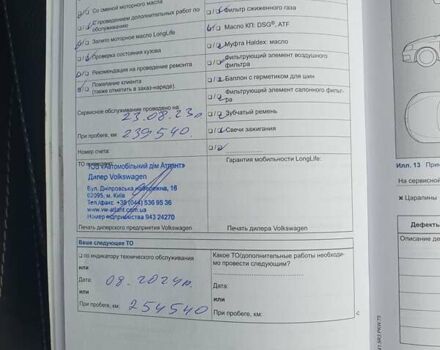 Со сменой моторного масла
С проведением дополнительных работ по обслуживанию
Залито моторное масло LongLife
Проверка состояния кузова
Рекомендация на проведение ремонта
Пожелание клиента
(также отметить в заказ-наряде)
Сервисное обслуживание проведено на
23.08.23г
При пробеге, км:
239540
Номер счета:
ТОВ «Автомобільний дім Атлант»
Дилер Volkswagen
Вул. Дніпровська набережна, 16
02095, м. Київ
Тел./факс +38 (044) 536 95 36
www.vw-atlant.com.ua
Номер підприємства 943 24270
Печать дилерского предприятия Volkswagen
Фильтр сжиженного газа
Масло КП: DSG®, ATF
Муфта Haldex: масло
Фильтрующий элемент воздушного
фильтра
Баллон с герметиком для шин
Фильтрующий элемент салонного фильт-
ра
Зубчатый ремень
Свечи зажигания
Гарантия мобильности LongLife:
Печать дилера Volkswagen
Ваше следующее ТО
по индикатору технического обслуживания
или
Дата: 08.2024г.
или
При пробеге, км: 254540
Какое ТО/дополнительные работы необходи-
мо провести следующим?
Дата:
или
При пробеге, км:
Илл. 13
На сервисной
Царапины
Дефекты
Описание де